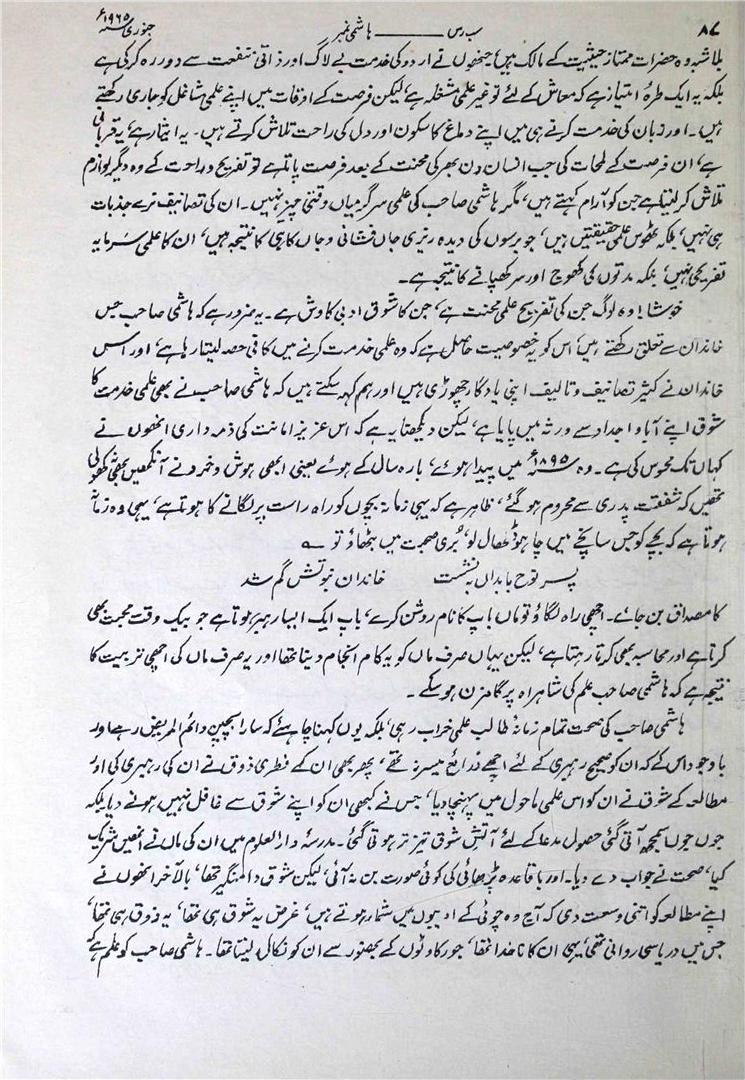 ۸۷ سب رس ـــــــــ ہاشمی نمبر جنوری سنہ ۱۹۶۵ء
بلاشبہ وہ حضرات ممتاز حیثیت کے مالک ہیں، جنھوں نے اردو کی خدمت بے لاگ اور ذاتی منفعت سے دور رہ کر کی ہے
بلکہ یہ ایک طرۂ امتیاز ہے کہ معاش کے لئے تو غیر علمی مشغلہ ہے، لیکن فرصت کے اوقات میں اپنے علمی مشاغل کو جاری رکھتے
ہیں۔ اور زبان کی خدمت کرنے ہی میں اپنے دماغ کا سکون اور دل کی راحت تلاش کرتے ہیں۔ یہ ایثار ہے، یہ قربانی
ہے، ان فرصت کے لمحات کی جب انسان دن بھر کی محنت کے بعد فرصت پاتا ہے تو تفریح و راحت کے وہ دیگر لوازم
تلاش کر لیتا ہے جن کو آرام کہتے ہیں، مگر ہاشمی صاحب کی علمی سرگرمیاں وقتی چیز نہیں۔ ان کی تصانیف نرے جذبات
ہی نہیں، بلکہ ٹھوس علمی حقیقتیں ہیں، جو برسوں کی دیدہ ریزی جاں فشانی و جاں کاہی کا نتیجہ ہیں، ان کا علمی سرمایہ
تفریحی نہیں، بلکہ مدتوں کی کھوج اور سر کھپانے کا نتیجہ ہے۔
خوشا یا وہ لوگ جن کی تفریح علمی محنت ہے، جن کا شوق ادبی کاوش ہے۔ یہ ضرور ہے کہ ہاشمی صاحب جس
خاندان سے تعلق رکھتے ہیں، اس کو یہ خصوصیت حاصل ہے کہ وہ علمی خدمت کرنے میں کافی حصہ لیتا رہا ہے، اور اس
خاندان نے کثیر تصانیف و تالیف اپنی یادگار چھوڑی ہیں اور ہم کہہ سکتے ہیں کہ ہاشمی صاحب نے بھی علمی خدمت کا
شوق اپنے آبا و اجداد سے ورثہ میں پایا ہے، لیکن دیکھنا یہ ہے کہ اس عزیز امانت کی ذمہ داری انھوں نے
کہاں تک محسوس کی ہے۔ وہ سنہ ۱۸۹۵ء میں پیدا ہوئے، بارہ سال کے ہوئے یعنی ابھی ہوش و خرد نے آنکھیں بھی نہ کھولی
تھیں کہ شفقت پدری سے محروم ہو گئے، ظاہر ہے کہ یہی زمانہ بچوں کو راہ راست پر لگانے کا ہوتا ہے، یہی وہ زمانہ
ہوتا ہے کہ بچے کو جس سانچے میں چاہو ڈھال لو، بری صحبت میں بٹھاؤ تو ؎
پسر نوح بابداں بہ نشست خاندان نبوتش گم شد
کا مصداق بن جائے۔ اچھی راہ لگاؤ تو ماں باپ کا نام روشن کرے، باپ ایک ایسا رہبر ہوتا ہے جو بیک وقت محبت بھی
کرتا ہے اور محاسبہ بھی کرتا رہتا ہے، لیکن یہاں صرف ماں کو یہ کام انجام دینا تھا اور یہ صرف ماں کی اچھی تربیت کا
نتیجہ ہے کہ ہاشمی صاحب علم کی شاہراہ پر گامزن ہو سکے۔
ہاشمی صاحب کی صحت تمام زمانۂ طالب علمی خراب رہی، بلکہ یوں کہنا چاہئے کہ سارا بچپن دائم المریض رہے اور
باوجود اس کے کہ ان کو صحیح رہبری کے لئے اچھے ذرائع میسر نہ تھے، پھر بھی ان کے فطری ذوق نے ان کی رہبری کی اور
مطالعہ کے شوق نے ان کو اس علمی ماحول میں پہنچا دیا، جس نے کبھی ان کو اپنے شوق سے غافل نہیں ہونے دیا بلکہ
جوں جوں سمجھ آتی گئی حصول مدعا کے لئے آتش شوق تیز تر ہوتی گئی۔ مدرسہ دارالعلوم میں ان کی ماں نے انھیں شریک
کیا، صحت نے جواب دے دیا۔ اور باقاعدہ پڑھائی کی کوئی صورت بن نہ آئی، لیکن شوق دامنگیر تھا، بالآخر انھوں نے
اپنے مطالعہ کو اتنی وسعت دی کہ آج وہ چوٹی کے ادیبوں میں شمار ہوتے ہیں، غرض یہ شوق ہی تھا، یہ ذوق ہی تھا،
جس میں دریا سی روانی تھی، یہی ان کا ناخدا تھا، جو رکاوٹوں کے بھنور سے ان کو نکال لیتا تھا۔ ہاشمی صاحب کو علم کے